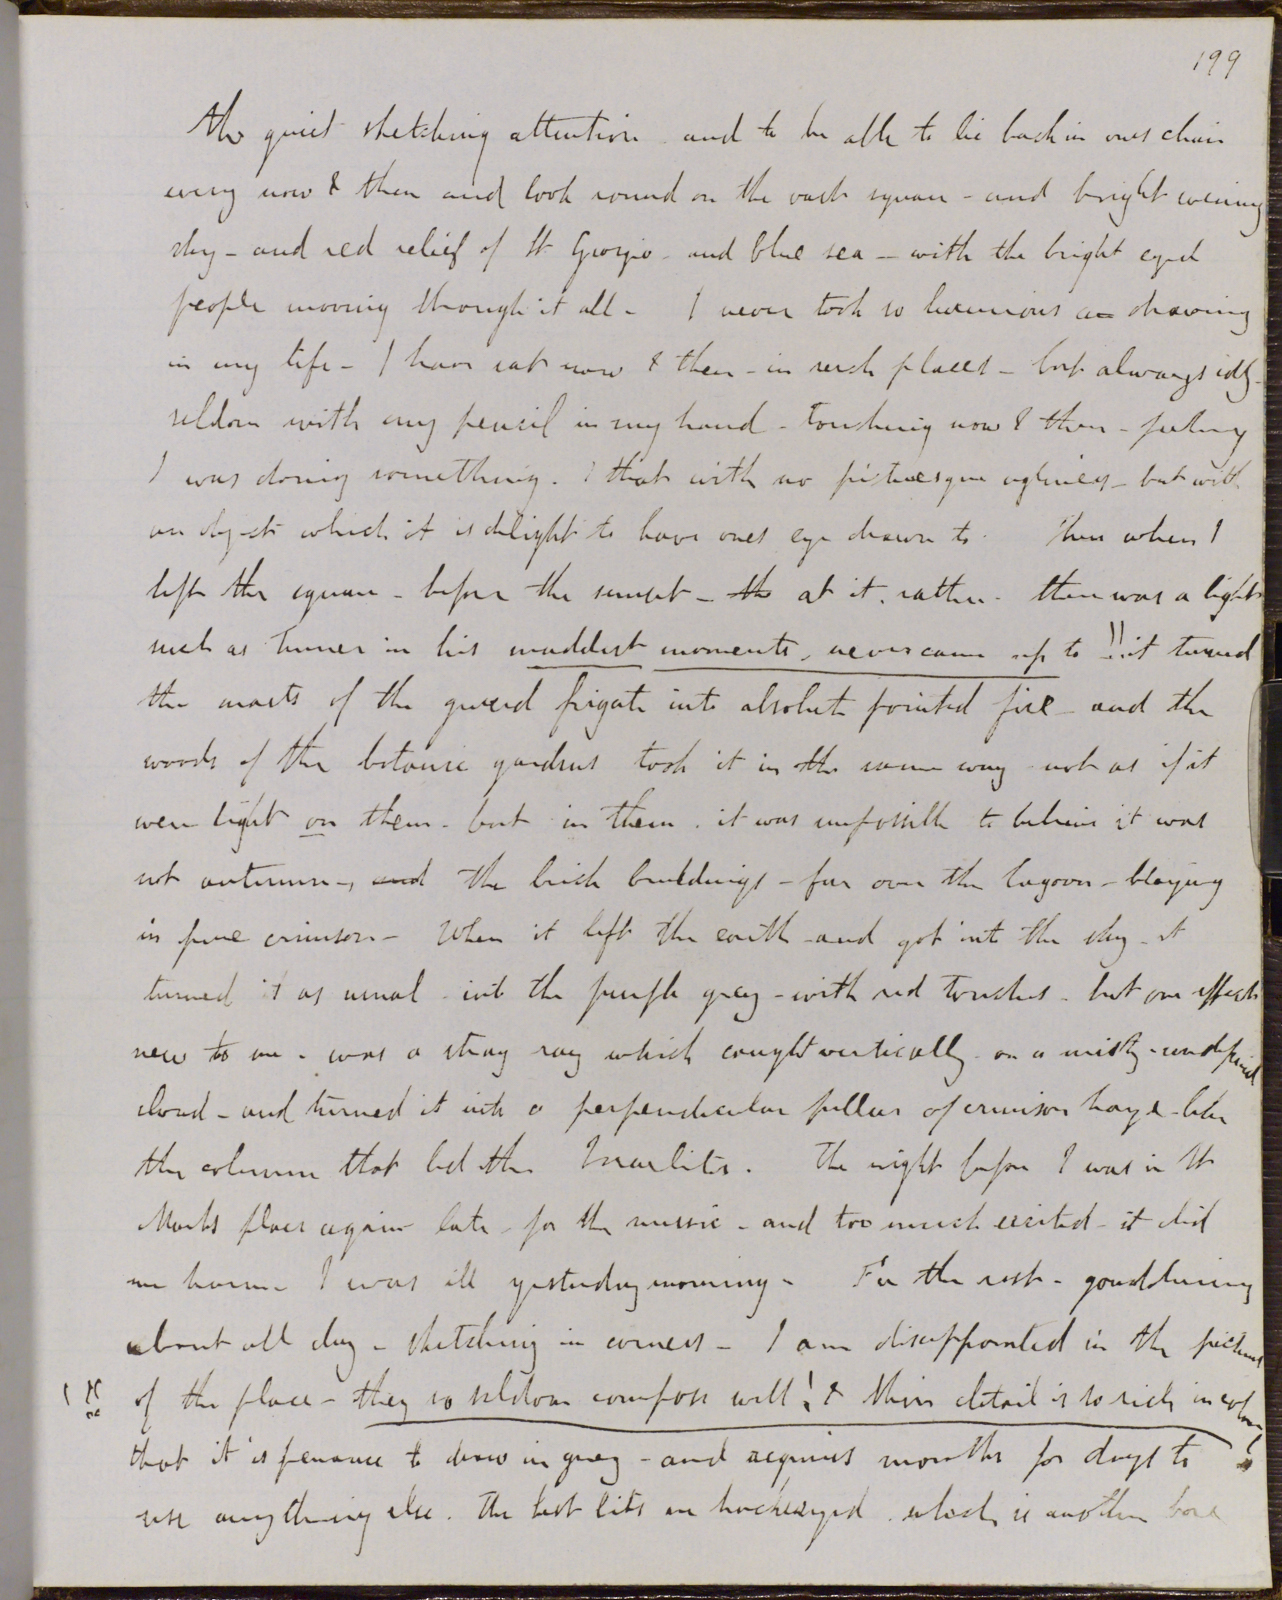 199
the quiet sketching attention and to be able to lie back in ones chair
every now & then and look round on the vast square - and bright evening
sky - and red relief of St Giorgio - and blue sea - with the bright eyed
people moving through it all - I never took so luxurious a drawing
in my life - I have sat now & then - in such places - but always idly -
seldom with my pencil in my hand - touching now & then - feeling
I was doing something. & that with no picturesque ugliness - but with
an object which it is delight to have ones eye drawn to. Then when I
left the square - before the sunset - the at it, rather - there was a light
such as Turner in his maddest moments, never came up to !! it turned
the masts of the guard frigate into absolute pointed fire - and the
woods of the botanic gardens took it in the same way not as if it
were light on them - but in them. it was impossible to believe it was
not autumn -, and the brick buildings - far over the lagoon - blazing
in pure crimson - When it left the earth - and got into the sky - it
turned it as usual - into the purple grey - with red touches - but one effect
new to me - was a stray ray which caught vertically on a misty - undefined
cloud - and turned it into a perpendicular pillar of crimson haze - like
the column that led the Israelites. The night before I was in St
Marks place again late - for the music - and too much excited - it did
me harm - I was ill yesterday morning - For the rest - gondoliering
about all day - sketching in corners - I am disappointed in the pictures
of the place - they so seldom compose well! & their detail is so rich in colour
that it is penance to draw in grey - and requires months for days to
use anything else. The best bits are hackneyed which is another bore